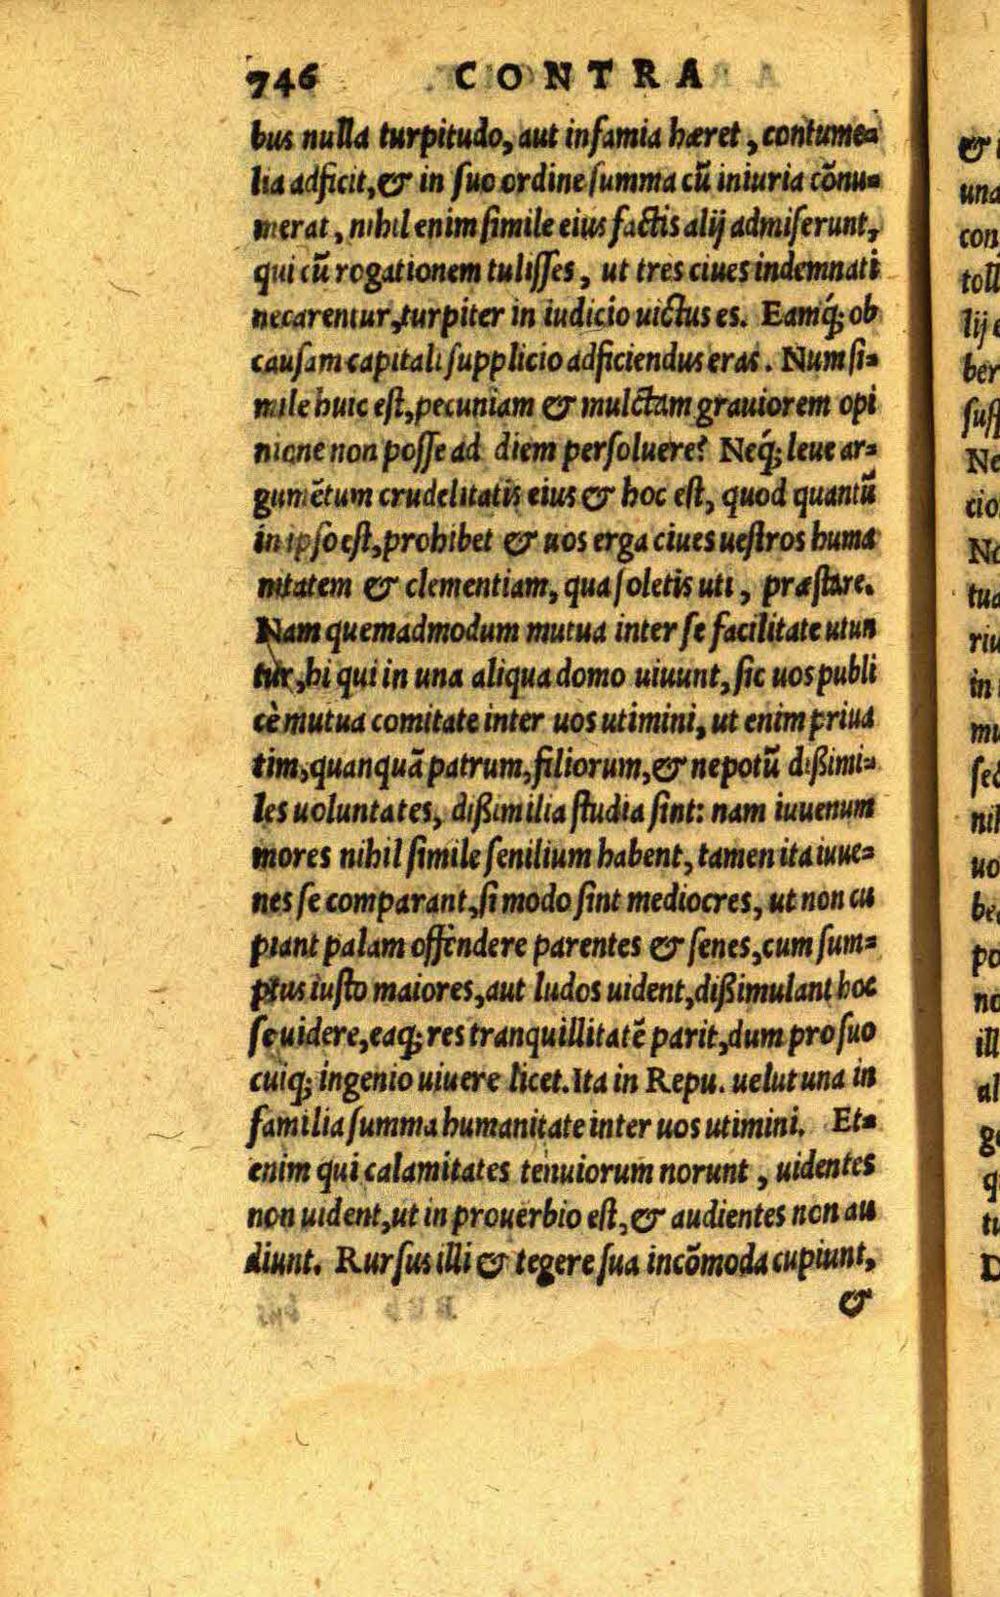 746 CONTRA
bus nulla turpitudo, aut infamia hæret, contume=
lia adficit, & in suo ordine summa cũ iniuria cõnu=
merat, nihil enim simile eius factis alij admiserunt,
qui cũ rogationem tulisses, ut tres ciues indemnati
necarentur, turpiter in iudicio uictus es. Eamq́; ob
causam capitali supplicio adficiendus eras. Num si=
mile huic est, pecuniam & mulctam grauiorem opi
nione non posse ad diem persoluere? Neq́; leue ar=
gumẽtum crudelitatis eius & hoc est, quod quantũ
in ipso est, prohibet & uos erga ciues uestros huma
nitatem & clementiam, qua soletis uti, præstare.
Nam quemadmodum mutua inter se facilitate utun
tur, hi qui in una aliqua domo uiuunt, sic uos publi
cè mutua comitate inter uos utimini, ut enim priua
tim, quanquã patrum, filiorum, & nepotũ dißimi=
les uoluntates, dißimilia studia sint: nam iuuenum
mores nihil simile senilium habent, tamen ita iuue=
nes se comparant, si modo sint mediocres, ut non cu
piant palam offendere parentes & senes, cum sum=
ptus iusto maiores, aut ludos uident, dißimulant hoc
se uidere, eaq; res tranquillitatẽ parit, dum pro suo
cuiq; ingenio uiuere licet. Ita in Repu. uelut una in
familia summa humanitate inter uos utimini. Et=
enim qui calamitates tenuiorum norunt, uidentes
non uident, ut in prouerbio est, & audientes non au
diunt. Rursus illi & tegere sua incõmoda cupiunt,
&